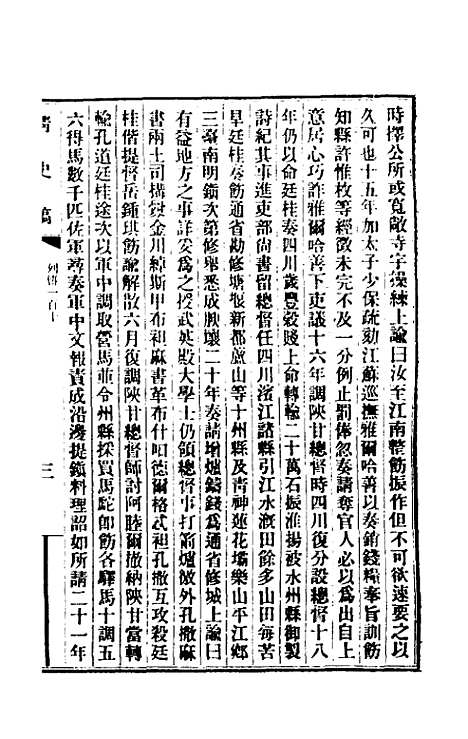 時擇公所或寬敞寺宇操練上諭曰汝至江南整飭振作但不可欲速要之以
久可也十五年加太子少保疏劾江蘇巡撫雅爾哈善以奏銷錢糧奉旨訓飭
知縣許惟枚等經徵未完不及一分例止罰俸忽奏請奪官人必以為出自上
意居心巧詐雅爾哈善下吏議十六年調陝甘總督時四川復分設總督十八
年仍以命廷桂奏四川歲豐穀賤上命轉輸二十萬石振淮揚被水州縣御製
詩紀其事進吏部尚書留總督任四川濱江諸縣引江水溉田餘多山田每苦
旱廷桂奏飭通省勘修塘堰新都蘆山等十州縣及青神蓮花壩樂山平江鄉
三臺南明鎮次第修舉悉成腴壤二十年奏請增爐鑄錢為通省修城上諭曰
有益地方之事詳妥為之授武英殿大學士仍領總督事打箭爐徼外孔撒麻
書兩土司構釁金川綽斯甲布袒麻書革布什咱德爾格忒袒孔撒互攻殺廷
桂偕提督岳鍾琪飭諭解散六月復調陝甘總督師討阿睦爾撒納陝甘當轉
輸孔道廷桂途次以軍中調取營馬並令州縣採買馬駝卽飭各驛馬十調五
六得馬數千匹佐軍尋奏軍中文報責成沿邊提鎮料理詔如所請二十一年
清史稿
列傳一百十
三